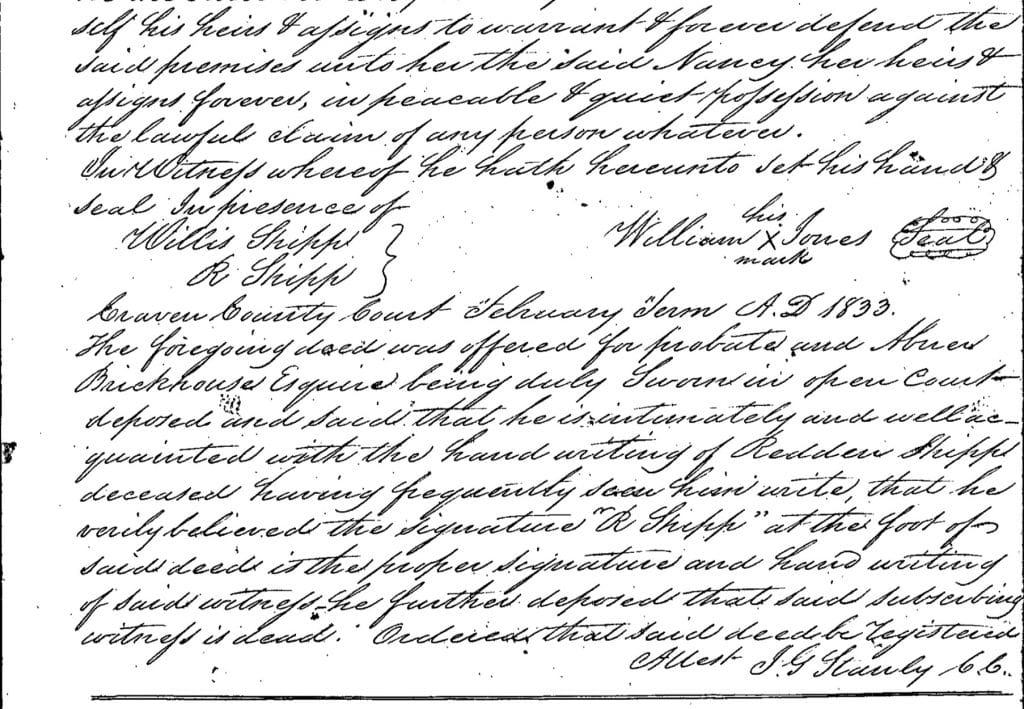 self his heirs & assigns to warrant & forever defend the
said premises unto her the said Nancy her heirs &
assigns forever, in peacable & quiet possession against
the lawful claim of any person whatever.
In Witness whereof he hath hereunto set his hand &
seal In presence of
Willis Shipp
R Shipp
his
William X Jones Seal
mark
Craven County Court February Term A.D 1833.
The foregoing deed was offered for probate and Abner
Brickhouse Esquire being duly Sworn in open Court
deposed and said that he is intimately and well ac-
quainted with the hand writing of Redden Shipp
deceased having frequently seen him write, that he
verily believed the signature "R Shipp" at the foot of
said deed is the proper signature and hand writing
of said witness he further deposed that said subscribing
witness is dead. Ordered that said deed be Registered
Attest J. G Stanly C. C.